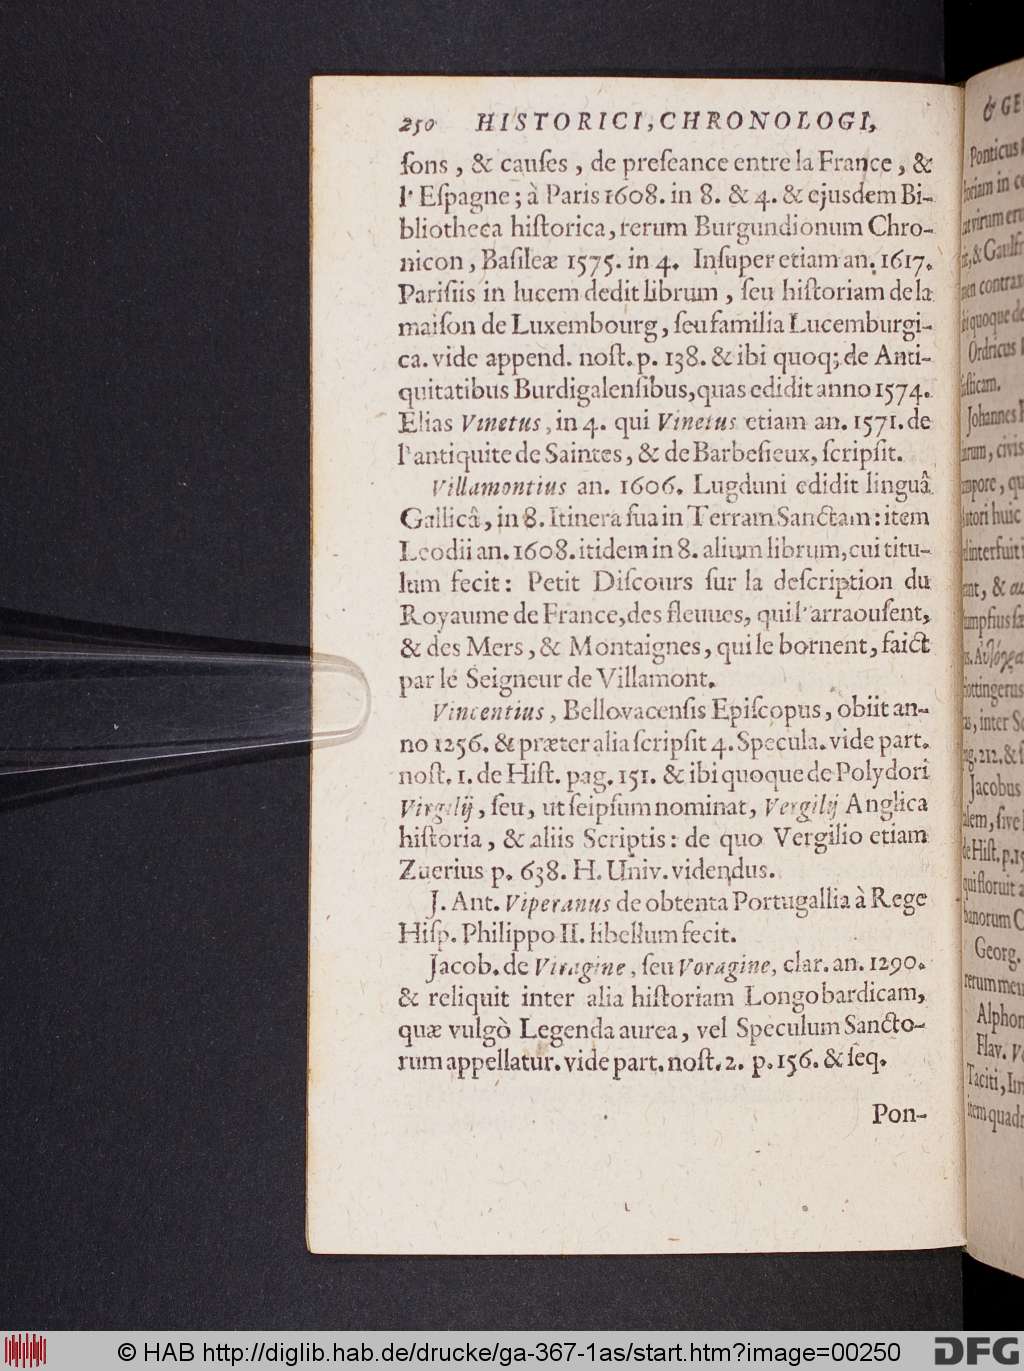 250 HISTORICI, CHRONOLOGI,
ſons, & cauſes, de preſeance entre la France, &
l' Eſpagne; à Paris 1608. in 8. & 4. & ejusdem Bi-
bliotheca hiſtorica, rerum Burgundionum Chro-
nicon, Baſileæ 1575. in 4. Inſuper etiam an. 1617.
Pariſiis in lucem dedit librum, ſeu hiſtoriam de la
maiſon de Luxembourg, ſeu familia Lucemburgi-
ca. vide append. noſt. p. 138. & ibi quoq; de Anti-
quitatibus Burdigalenſibus, quas edidit anno 1574.
Elias Vinetus, in 4. qui Vinetus etiam an. 1571. de
l'antiquite de Saintes, & de Barbeſieux, ſcripſit.
Villamontius an. 1606. Lugduni edidit linguâ
Gallicâ, in 8. Itinera ſua in Terram Sanctam: item
Leodii an. 1608. itidem in 8. alium librum, cui titu-
lum fecit: Petit Diſcours ſur la deſcription du
Royaume de France, des fleuues, qui l'arraouſent,
& des Mers, & Montaignes, qui le bornent, faict
par le Seigneur de Villamont.
Vincentius, Bellovacenſis Epiſcopus, obiit an-
no 1256. & præter alia ſcripſit 4. Specula. vide part.
noſt. 1. de Hiſt. pag. 151. & ibi quoque de Polydori
Virgilij, ſeu, ut ſeipſum nominat, Vergilij Anglica
hiſtoria, & aliis Scriptis: de quo Vergilio etiam
Zuerius p. 638. H. Univ. videndus.
J. Ant. Viperanus de obtenta Portugallia à Rege
Hiſp. Philippo II. libellum fecit.
Jacob. de Viragine, ſeu Voragine, clar. an. 1290.
& reliquit inter alia hiſtoriam Longobardicam,
quæ vulgò Legenda aurea, vel Speculum Sancto-
rum appellatur. vide part. noſt. 2. p. 156. & ſeq.
Pon-
& GE
Ponticus
in
virum
& Gaulf
contrax
quoque de
Ordricus
Johannes
civis
huic
interfuit
& au
inter
212. &
Jacobus
ſive
Hiſt. p.
qui floruit
Georg.
rerum
Alphon
Flav.
Taciti,
item
© HAB http://diglib.hab.de/drucke/ga-367-1as/start.htm?image=00250
DFG